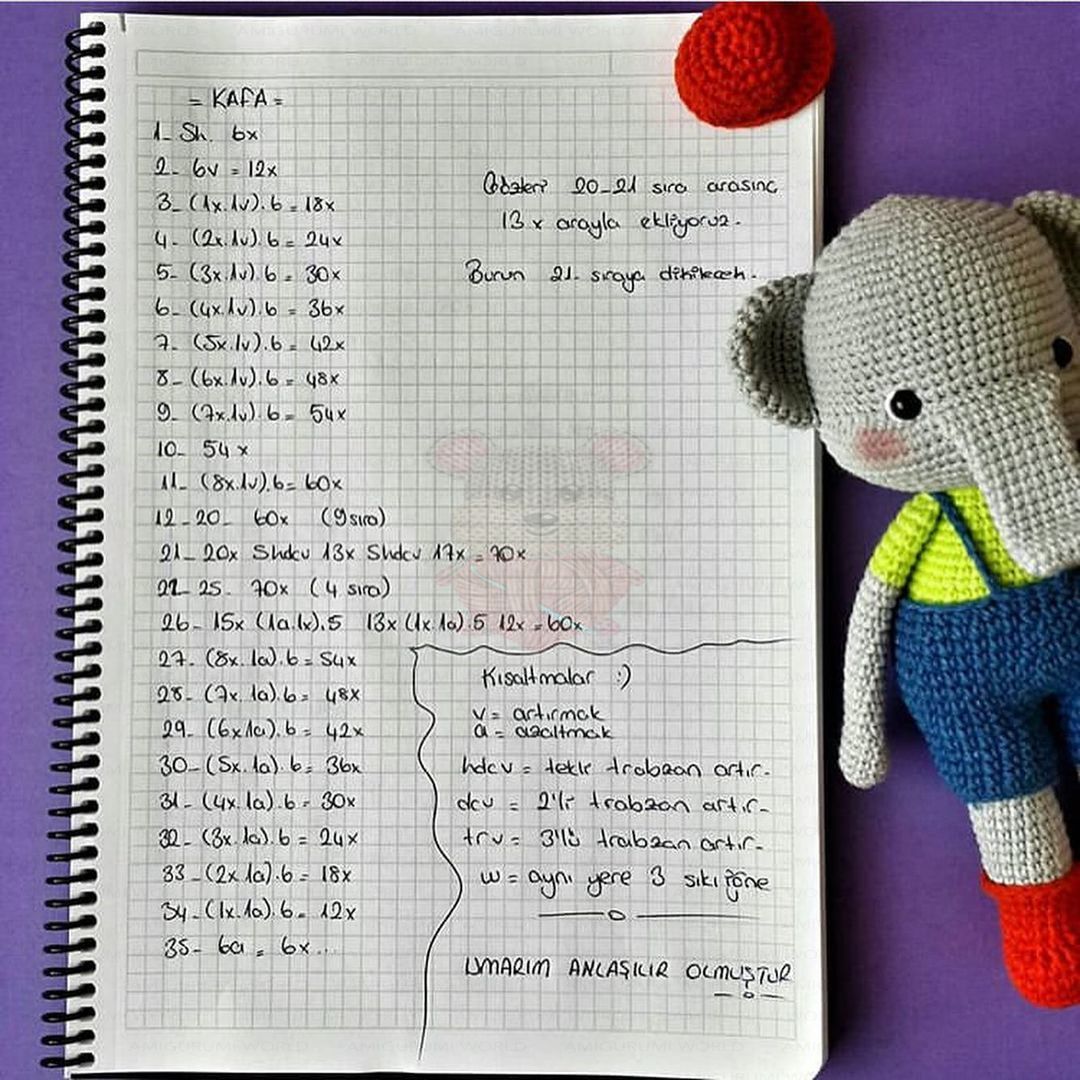 = KAFA =
1- Sh. 6x
2- 6v = 12x
3- (1x.1v).6 = 18x
4- (2x.1v).6 = 24x
5- (3x.1v).6 = 30x
6- (4x.1v).6 = 36x
7- (5x.1v).6 = 42x
8- (6x.1v).6 = 48x
9- (7x.1v).6 = 54x
10- 54x
11- (8x.1v).6 = 60x
12-20- 60x (9 sıra)
21- 20x 5hdcv 13x 5hdcv 17x = 70x
22-25- 70x (4 sıra)
26- 15x (1a.1x).5 13x (1x.1a).5 12x = 60x
27- (8x.1a).6 = 54x
28- (7x.1a).6 = 48x
29- (6x1a).6 = 42x
30- (5x.1a).6 = 36x
31- (4x.1a).6 = 30x
32- (3x.1a).6 = 24x
33- (2x.1a).6 = 18x
34- (1x.1a).6 = 12x
35- 6a = 6x...
Gözleri 20-21 sıra arasına
13x arayla ekliyoruz.
Burun 21. sıraya dikilecek.
Kısaltmalar :)
v = artırmak
a = azaltmak
hdcv = tekli trabzan artır-
dcv = 2'li trabzan artır-
trv = 3'lü trabzan artır-
w = aynı yere 3 sık iğne
UMARIM ANLAŞILIR OLMUŞTUR
AMIGURUMI WORLD